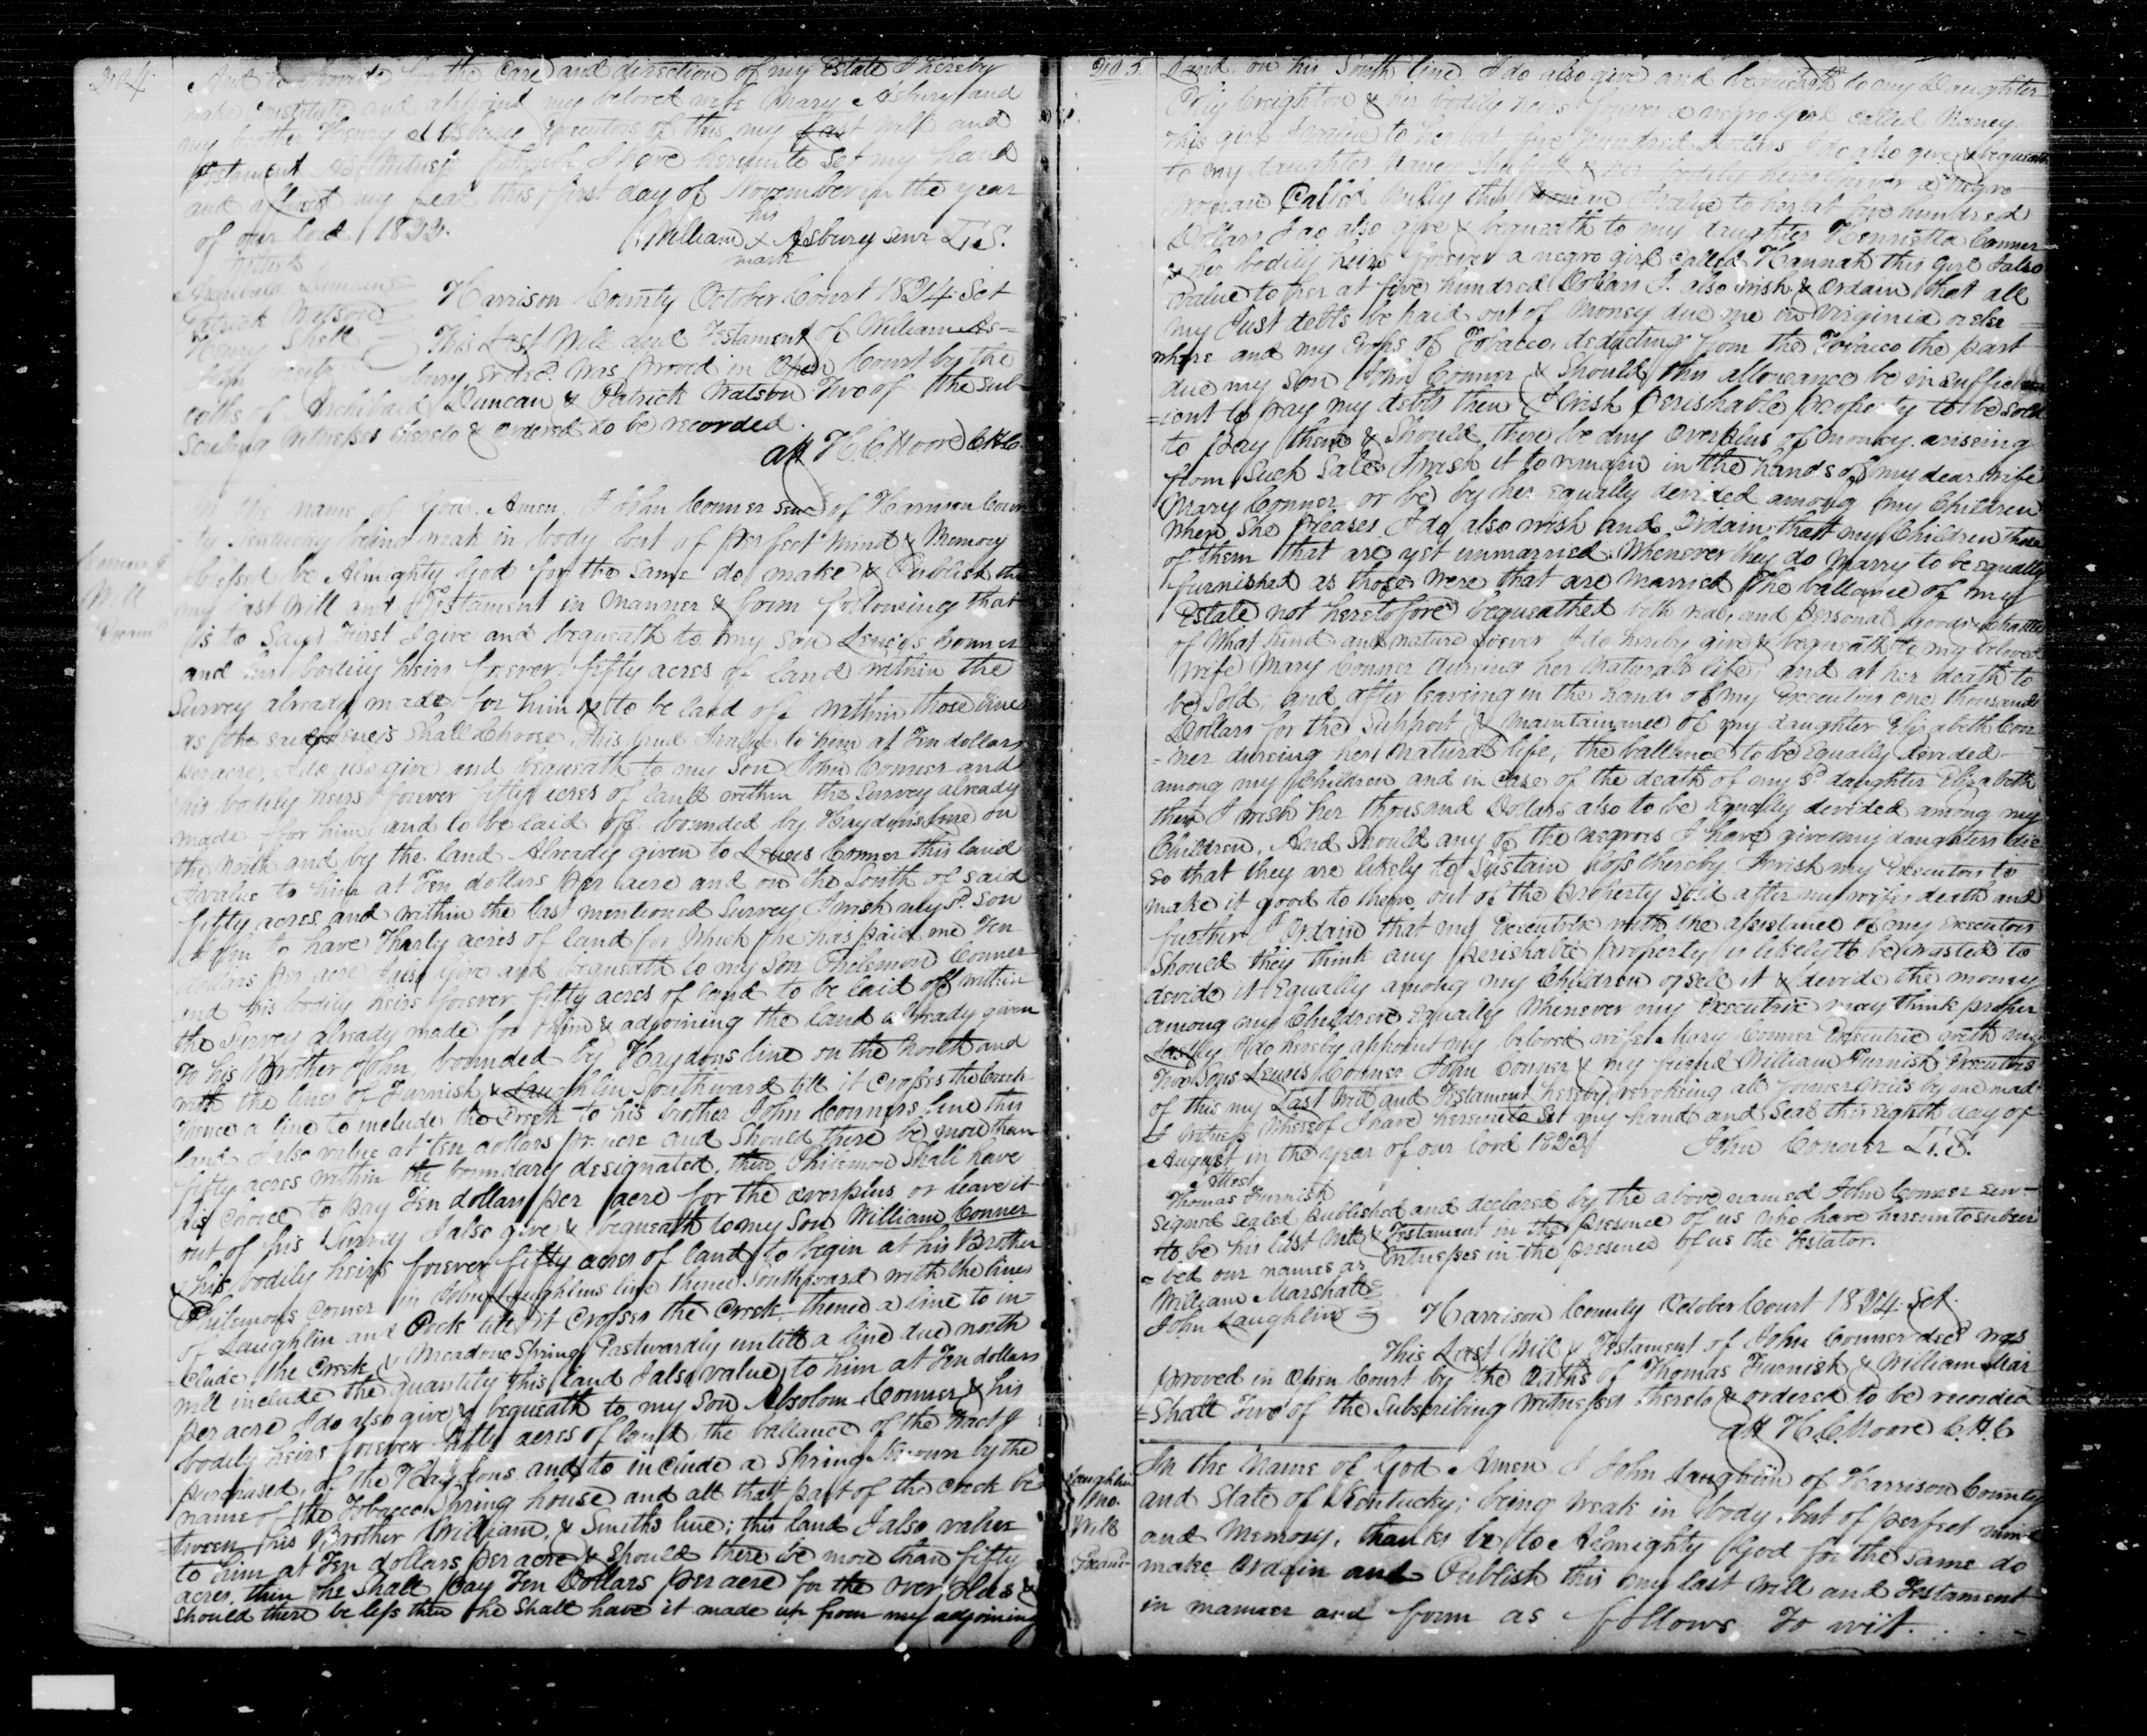 204
And to provide for the Care and direction of my Estate I hereby
make Constitute and appoint my beloved wife Mary Asbury and
my brother Henry Asbury Executors of this my Last Will and
Testament As Witness Whereof I have hereunto Set my hand
and affixed my Seal this first day of November in the year
of our lord 1823.
his
William X Asbury senr L.S.
mark
Archibald Duncan
Patrick Watson
Henry
Harrison County October Court 1824. Sct
This Last Will and Testament of William As=
bury Sr decd. was proved in Open Court by the
oaths of Archibald Duncan & Patrick Watson Two of the sub-
scribing Witnesses thereto & ordered to be recorded.
att H. C. Moore C.H.C.
In the name of God Amen, I John Conner senr of Harrison Coun
ty Kentucky being weak in body but of perfect mind & Memory
blessed be Almighty God for the Same do make & Publish this
my Last Will and Testament in Manner & form following that
is to Say, First I give and bequeath to my son Lewis Conner
and his bodily heirs forever fifty acres of land within the
Survey already made for him & to be laid off within those lines
as the said Lewis Shall Choose. This land I value to him at Ten dollars
per acre, I do also give and bequeath to my Son John Conner and
his bodily heirs forever fifty acres of land within the Survey already
made for him and to be laid off bounded by Haydons line on
the North and by the land Already given to Lewis Conner this land
I value to him at Ten dollars per acre and on the South of said
fifty acres and within the last mentioned Survey I wish my Sd. Son
John to have Thirty acres of land for Which he has paid me Ten
dollars per acre I also give and bequeath to my Son Philemon Conner
and his bodily heirs forever fifty acres of land to be laid off within
the Survey already made for him & adjoining the land already given
to his Brother John, bounded by Haydons line on the North and
with the lines of Furnish & Laughlin Southward till it Crosses the Creek
thence a line to include the Creek to his brother John Conners line this
land I also value at ten dollars pr. acre and Should there be more than
fifty acres within the boundary designated, then Philemon Shall have
his choice to pay Ten dollars per acre for the overplus or leave it
out of his Survey I also give & bequeath to my Son William Conner
& his bodily heirs forever fifty acres of land to begin at his Brother
Philemons Corner in John Laughlins line thence Southward with the lines
of Laughlin and Pock till it Crosses the Creek, thence a line to in-
clude the Creek & Meadow Spring Eastwardly untill a line due north
will include the quantity this land I also value to him at Ten dollars
per acre I do also give & bequeath to my Son Absolom Conner & his
bodily heirs forever fifty acres of land the ballance of the tract I
purchased of the Haydons, and to include a Spring known by the
name of the Tobacco Spring house and all that part of the Creek be
tween his Brother William, & Smiths line; this land I also value
to him at Ten dollars per acre & Should there be more than fifty
acres, then he Shall pay Ten Dollars per acre for the over plus &
should there be less then he Shall have it made up from my adjoining
Will
205.
Land on his South line I do also give and bequeath to my Daughter
Polly Creighton & her bodily heirs forever a negro girl called Nancy.
This girl I value to her at five hundred dollars I do also give & bequeath
to my daughter & her bodily heirs forever a negro
woman Called Milly this Woman I value to her at five hundred
Dollars I do also give & bequeath to my daughter Henrietta Conner
& her bodily heirs forever a negro girl called Hannah this girl I also
value to her at five hundred Dollars I. also wish & Ordain that all
my Just debts be paid out of Money due me in Virginia or else =
where and my Crops of Tobacco, deducting from the Tobacco the part
due my Son John Conner & Should this allowance be insuffic
=ient to pay my debts then I wish perishable property to be sold
to pay them & Should there be any overplus of money arising
from Such Sales I wish it to remain in the hands of my dear wife
Mary Conner or be by her equally devided among my Children
when She pleases I do also wish and Ordain that my Children those
of them that are yet unmarried Whenever they do Marry to be equally
furnished as those were that are married The ballance of my
Estate not heretofore bequeathed both real and personal goods & chattles
of What kind and nature soever I do hereby give & bequeath to my beloved
wife Mary Conner during her Natural life, and at her death to
be Sold, and after leaving in the hands of my Executors one thousand
Dollars for the Support & Maintainance of my daughter Elizabeth Con
=ner dureing her natural life, the ballance to be Equally devided
among my Children and in Case of the death of my Sd. daughter Elizabeth
then I wish her thousand Dollars also to be Equally devided among my
Children, And Should any of the negroes I have given my daughters die
so that they are likely to Sustain loss thereby I wish my Executors to
make it good to them out of the Property Sold after my wifes death and
further I Ordain that my Executrix with the assistance of my Executors
Should they think any perishable property is likely to be wasted to
devide it Equally among my Children or sell it & devide the money
among my Children equally Whenever my Executrix may think proper
Lastly I do hereby appoint my beloved wife Mary Conner Executrix with my
Two Sons Lewis Conner John Conner & my friend William Furnish Executors
of this my Last Will and Testament hereby revoking all former wills by me made
I Witness Whereof I have hereunto Set my hand and Seal this eighth day of
August in the year of our Lord 1823
John Conner L.S.
Attest
Thomas Furnish
Signed Sealed published and declared by the above named John Conner Sen-
to be his last Will & Testament in the presence of us who have hereunto subscri
=bed our names as Witnesses in the presence of us the Testator.
William Marshall
John Laughlin
Harrison County October Court 1824. Sct.
This Last Will & Testament of John Conner decd was
proved in Open Court by the Oaths of Thomas Furnish & William Mar
=shall Two of the Subscribing Witnesses thereto & ordered to be recorded
att H. C. Moore C.H.C
Laughlin
Jno.
Will
In the Name of God Amen I John Laughlin of Harrison County
and State of Kentucky; being weak in body, but of perfect mind
and Memory, thanks be to Almighty God for the same do
make Ordain and Publish this my last Will and Testament
in manner and form as follows To wit.